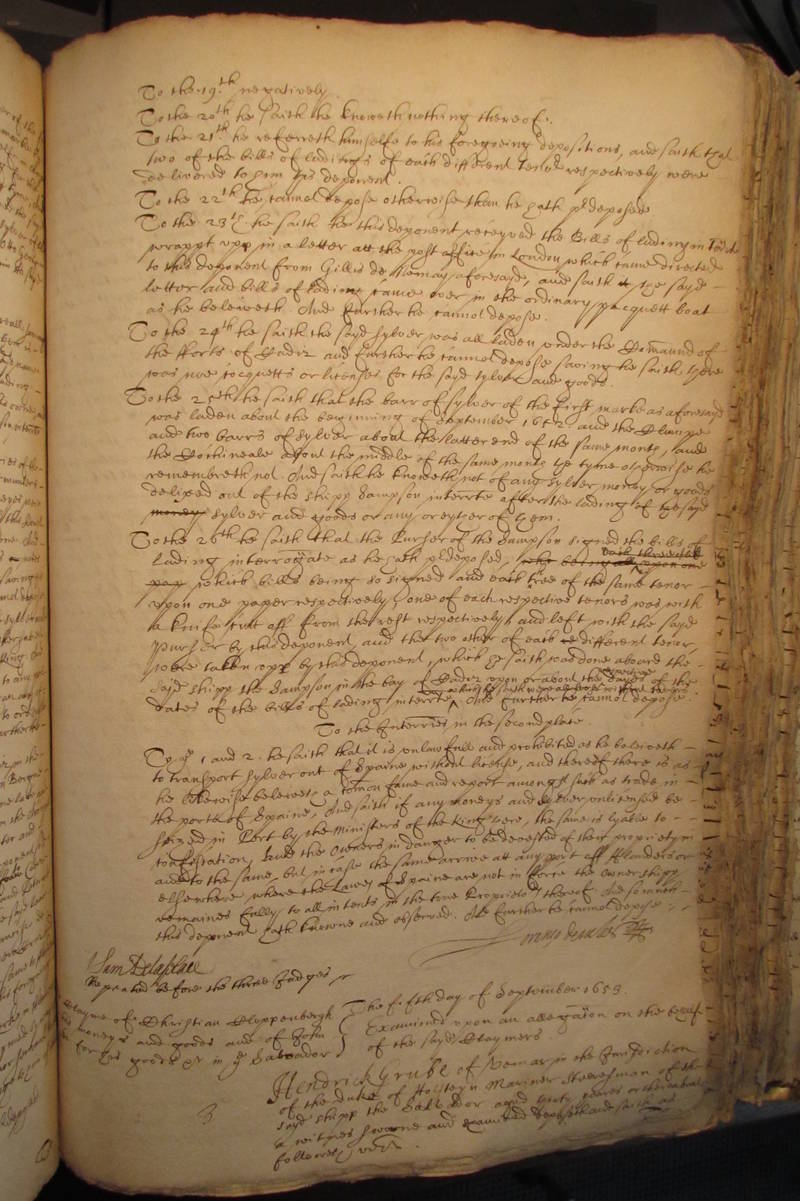 To the 19th negatively
To the 20th he saith he knoweth nothing thereof.
To the 21th he referreth himselfe to his foregoeing depositions, and saith that
two of the bills of ladeings of each different tenor respectively were
delivered to him this deponent.
To the 22th he cannot depose otherwise than he hath predeposed
To the 23th he saith he this deponent received the Bills of lading in
wrappt upp in a letter att the post office in London, which came directed
to this deponent from Gillis de aforesayd, and saith the sayd
letter and bills of lading came over in the ordinary pacquett boat
as he beleiveth. And further he cannot depose.
To the 24th he saith the sayd sylver was all laden under the Command of
the fforts of Cadiz and further he cannot depose saving he saith there
was noe cocquetts or licenses for the sayd sylver and goods.
To the 25th he saith that the barr of sylver of the first marke as aforesayd
was laden about the beginning of September 1652 and the
and two barrs of sylver about the latter end of the same month, and
the Cochineale about the middle of the same month the tyme otherwise he
remembreth not. And saith he knoweth not of any sylver money or goods
delivered out of the shipp Sampson interrate after the lading of the sayd
money sylver and goods or any or eyther of them.
To the 26th he saith that the Purser of the Sampson signed the bills of
lading interrogate as he hath predeposed, being upon one
which bills being so signed and each three of the same tenor
upon one paper respectively, one of each respective tenors was with
a knife cutt off from the rest respectively and left with the sayd
Purser by this deponent, and the two other of each different tenor
to be taken upp by this deponent, which he saith was done aboard the
sayd shipp the Sampson in the bay of Cadiz upon or about the dayes of the
dates of the bills of lading interrate And further he cannot depose.
To the Interries in the second place.
To ye 1 and 2. he saith that it is unlawfull and prohibited as he beleiveth
to transport sylver out of Spaine without license, and thereof there is as
he likewise beleives a common fame and report amongst such as trade in
the ports of Spaine, And saith if any moneys and sylver unlicensed be
seized in Port by the Ministers of the King there, the same is lyable to
confiscation, and the Owners in danger to be devested of their propriety in
and to the same, but in case the same arrive att any port off fflanders or
elsewhere where the Lawes of Spaine are not in force the ownershipp
remaines fully to all intents in the true Proprietor thereof. And so much
this deponent hath knowne and observed. And further he cannot depose.
Repeated before the three Judges
Clayme of Christian Cloppenbergh
moneys and goods and of John
for his goods in ye Salvador
The fifth day of September 1653.
Examined upon an allegation on the behalf
of the sayd Claymers.
Hendrick Grube of in the Jurisdiction
of the Duke of Holsteyn Mariner Steersman of the
sayd shipp the Salvador aged thirty yeares or thereabouts
a witnes sworne and examined deposeth and saith as
followeth vizt.